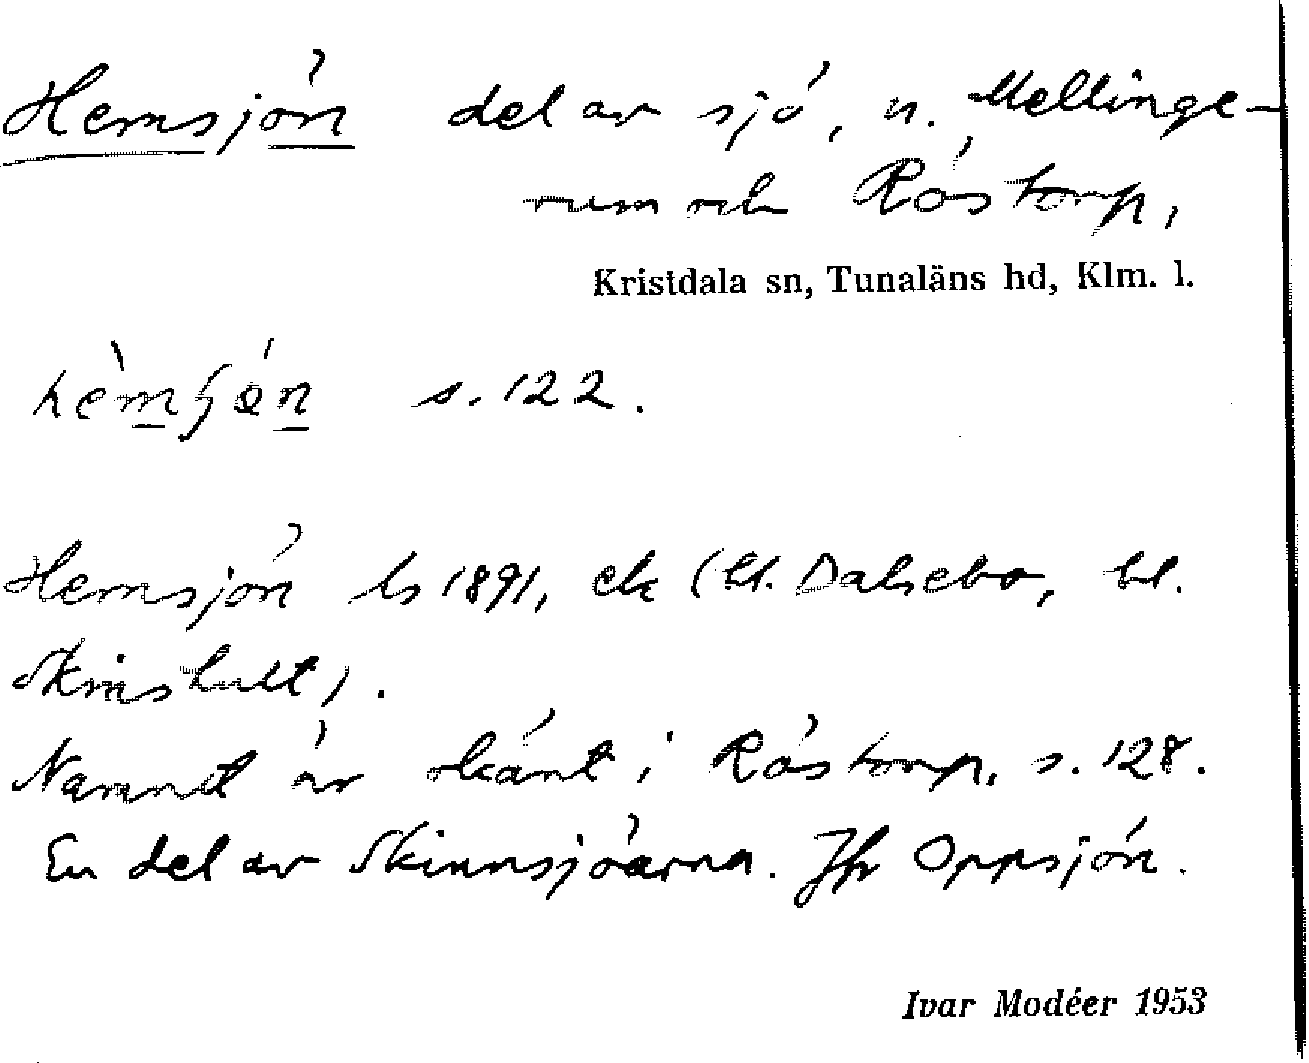 Hemsjön del av sjö, n. Mellinge-
rum och Röstorp,
Kristdala sn, Tunaläns hd, Klm. l.
s. 122.
Hemsjön ls 1891, ek (bl. Dalsebo, bl.
Skrikshult).
Namnet är okänt i Röstorp, s. 128.
En del av Skinnsjöarna. Jfr Oppsjön.
Ivar Modéer 1953